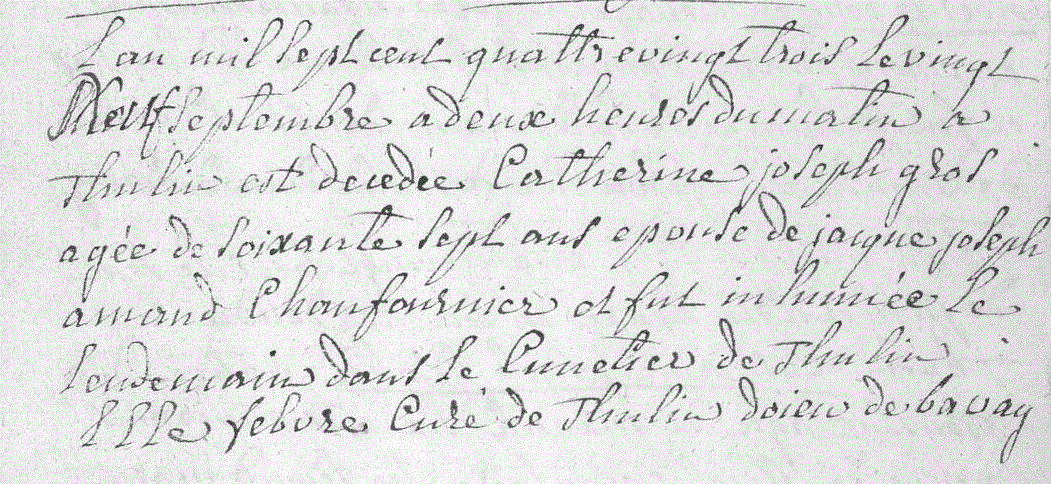 L'an mil sept cent quattrevingt trois le vingt
neuf septembre a deux heures du matin a
Thulin est decedée Catherine joseph gros
agée de soixante sept ans epouse de jacque joseph
amand Chaufournier et fut inhumée le
lendemain dans le Cimetier de Thulin
Le febvre Curé de Thulin doien de bavay